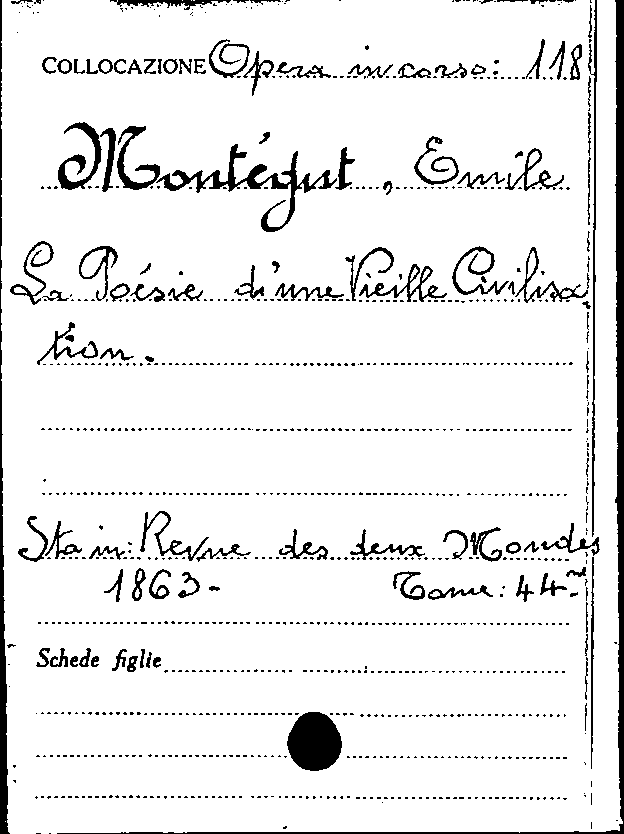 COLLOCAZIONE Opera in corso: 118
Montégut, Emile
La Poésie d'une Vieille Civilisa
tion.
Sta in: Revue des deux Mondes
1863- Tome: 44
Schede figlie